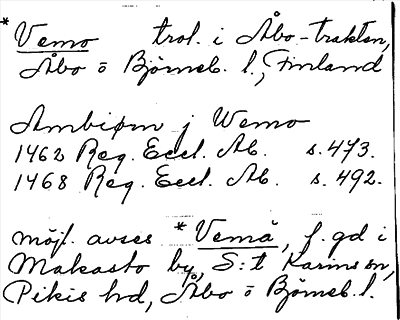 * Vemo trol. i Åbo-trakten,
Åbo o Björneb. l., Finland
Ambiørn j Wemo
1462 Reg. Eccl. Ab. s. 473.
1468 Reg. Eccl. Ab. s. 492.
möjl. avses * Vemå, f. gd i
Makasto by, S:t Karins sn,
Pikis hd, Åbo o Björneb. l.